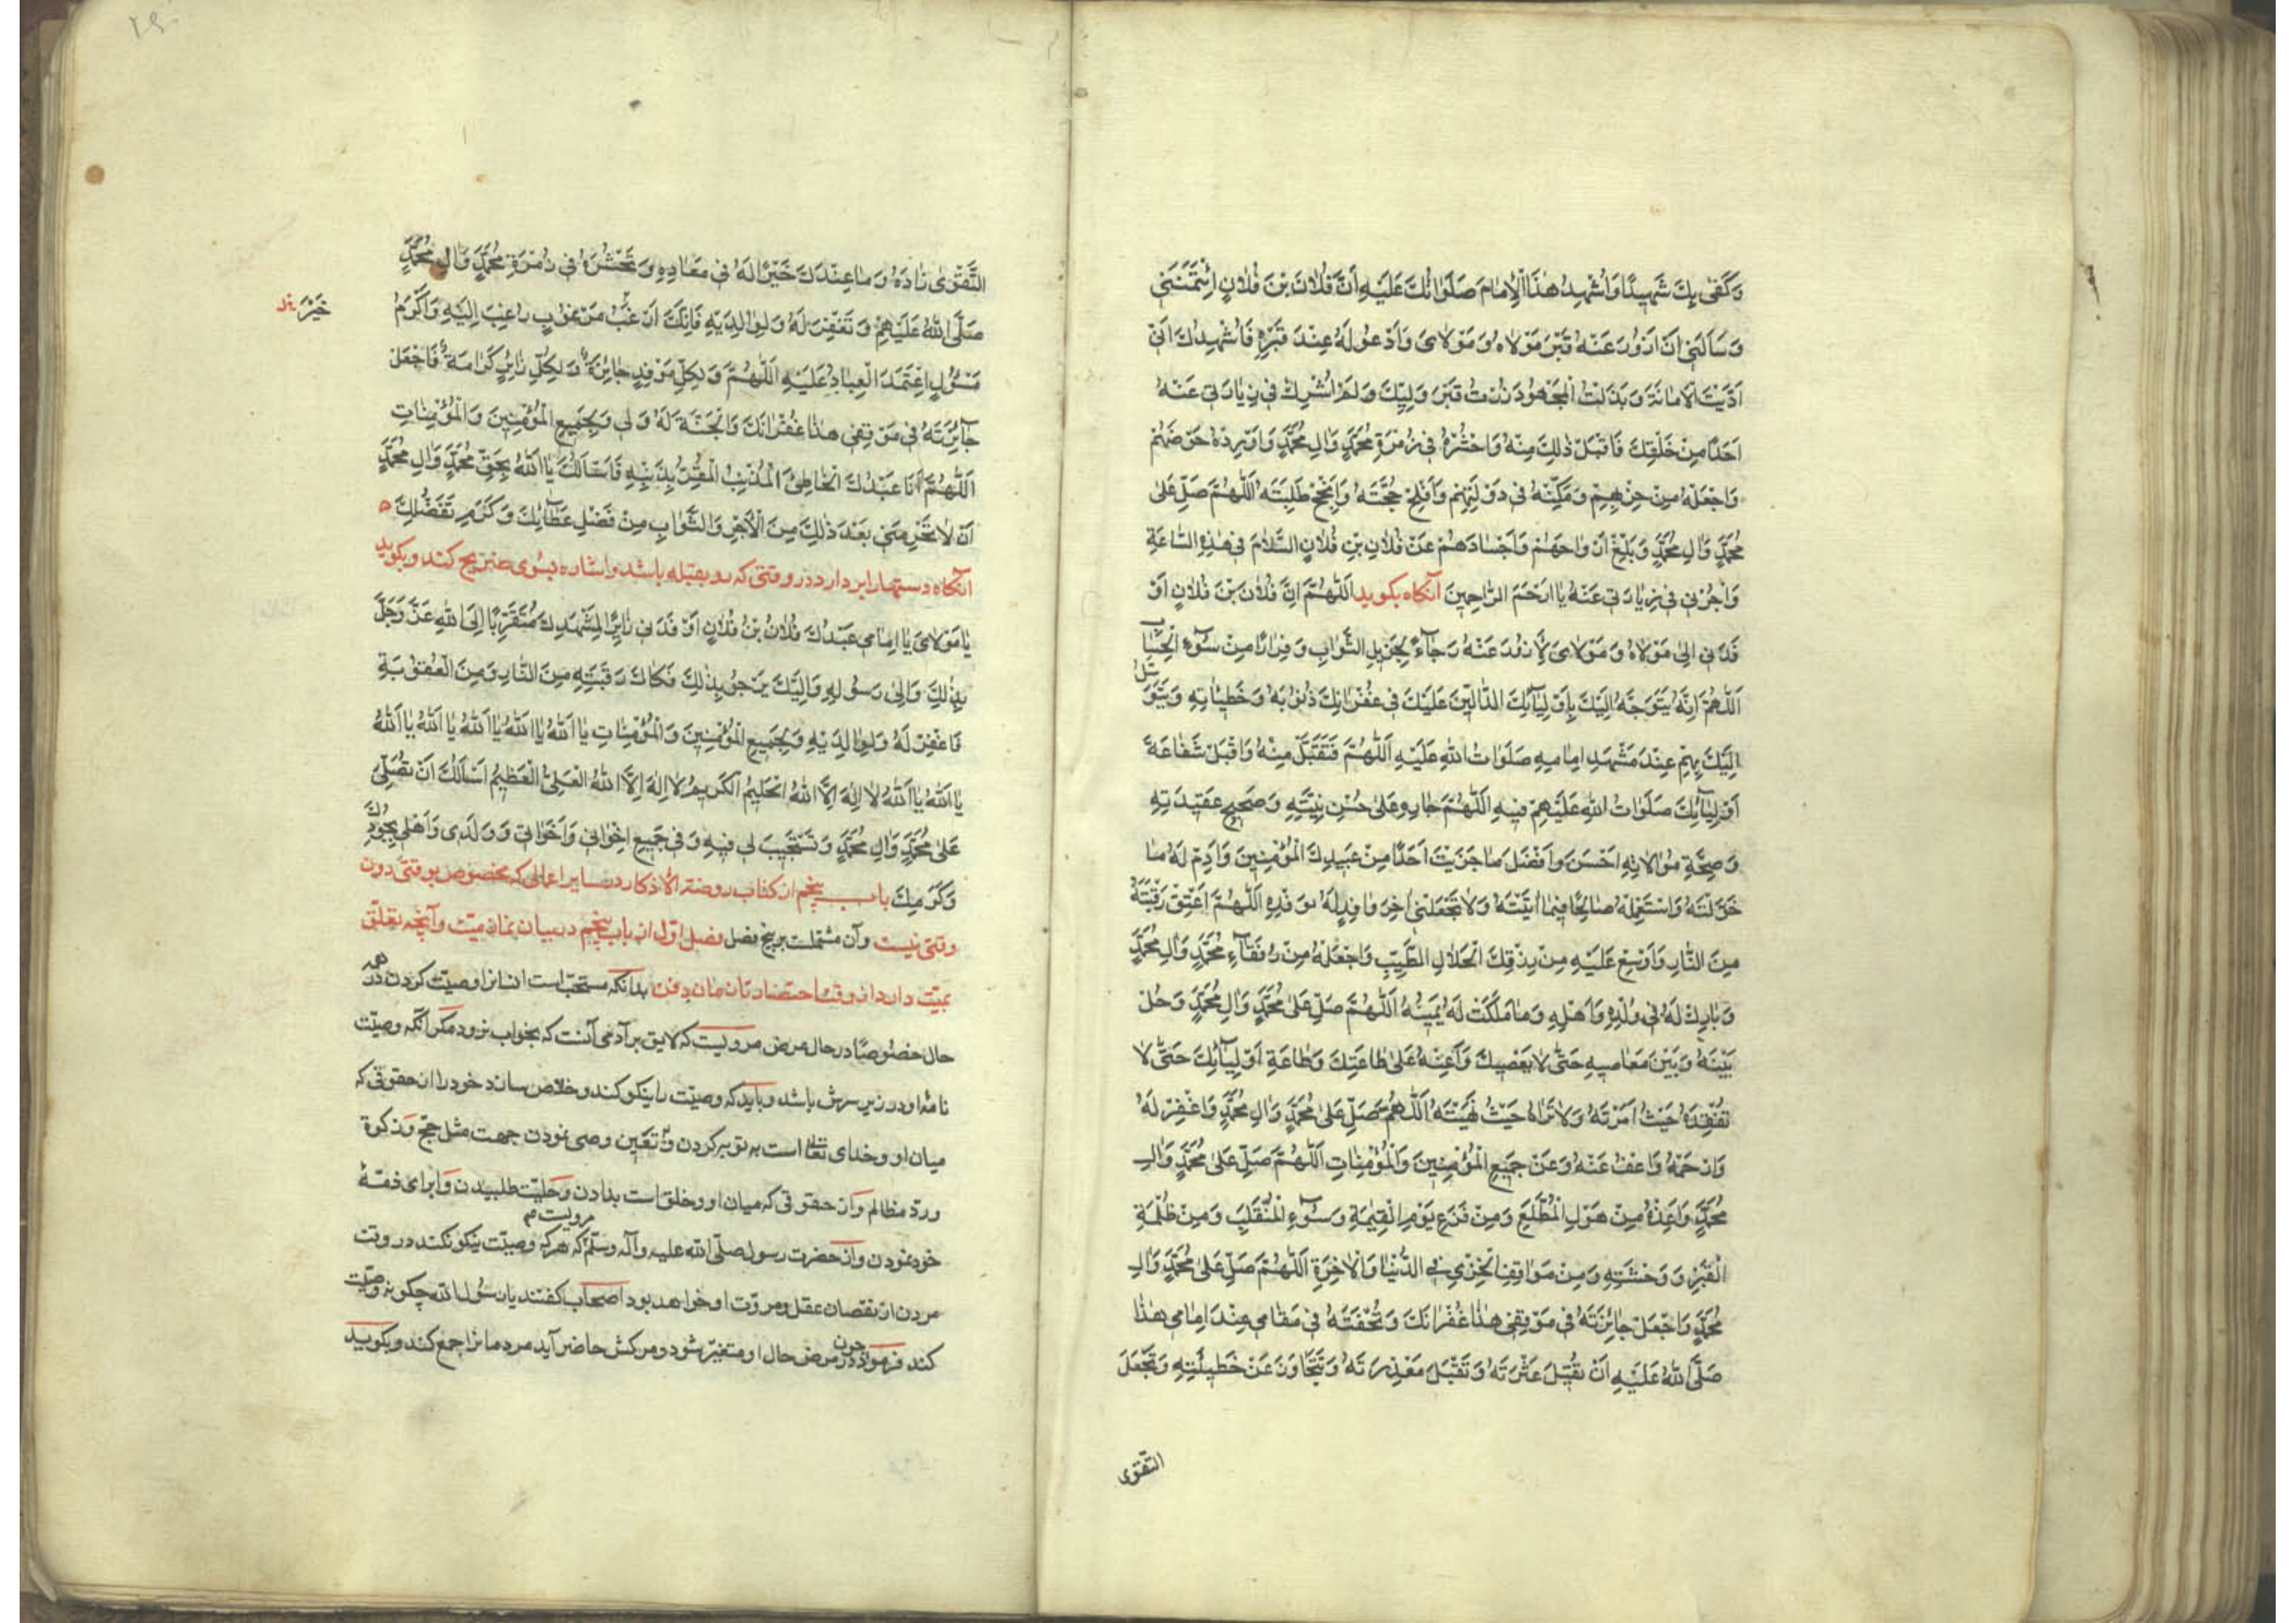 وَكَفىٰ بِكَ شَهِيدًا وَاُشْهِدُ هٰذَا الْاِمَامَ صَلَوَاتُكَ عَلَيْهِ اَنَّ فُلَانَ بْنَ فُلَانٍ اِئْتَمَنَنِي
وَسَأَلَنِي اَنْ اَزُورَ عَنْهُ قَبْرَ مَوْلَاهُ وَمَوْلَاىَ وَاَدْعُوَ لَهُ عِنْدَ قَبْرِهِ فَاُشْهِدُكَ اَنِّي
اَدَّيْتُ الْاَمَانَةَ وَبَذَلْتُ الْمَجْهُودَ زُرْتُ قَبْرَ وَلِيِّكَ وَلَمْ اُشْرِكْ فِي زِيَارَتِي عَنْهُ
اَحَدًا مِنْ خَلْقِكَ فَاقْبَلْ ذٰلِكَ مِنْهُ وَاحْشُرْهُ فِي زُمْرَةِ مُحَمَّدٍ وَاٰلِ مُحَمَّدٍ وَاَوْرِدْهُ حَوْضَهُمْ
وَاجْعَلْهُ مِنْ حِزْبِهِمْ وَمَكِّنْهُ فِي دَوْلَتِهِمْ وَاَفْلِحْ حُجَّتَهُ وَاَنْجِحْ طَلِبَتَهُ اَللّٰهُمَّ صَلِّ عَلىٰ
مُحَمَّدٍ وَاٰلِ مُحَمَّدٍ وَبَلِّغْ اَرْوَاحَهُمْ وَاَجْسَادَهُمْ عَنْ فُلَانِ بْنِ فُلَانٍ السَّلَامَ فِي هٰذِهِ السَّاعَةِ
وَاْجُرْنِي فِي زِيَارَتِي عَنْهُ يَا اَرْحَمَ الرَّاحِمِينَ آنكاه بكويد اَللّٰهُمَّ اِنَّ فُلَانَ بْنَ فُلَانٍ اَوْ
فَدَنِي اِلىٰ مَوْلَاهُ وَمَوْلَاىَ لِاَزُورَ عَنْهُ رَجَاءً لِجَزِيلِ الثَّوَابِ وَفِرَارًا مِنْ سُوءِ الْحِسَابِ
اَللّٰهُمَّ اِنَّهُ يَتَوَجَّهُ اِلَيْكَ بِاَوْلِيَائِكَ الدَّالِّينَ عَلَيْكَ فِي غُفْرَانِكَ ذُنُوبَهُ وَخَطِيئَاتِهِ وَيَتَوَسَّلُ
اِلَيْكَ بِهِمْ عِنْدَ مَشْهَدِ اِمَامِهِ صَلَوَاتُ اللهِ عَلَيْهِ اَللّٰهُمَّ فَتَقَبَّلْ مِنْهُ وَاقْبَلْ شَفَاعَةَ
اَوْلِيَائِكَ صَلَوَاتُ اللهِ عَلَيْهِمْ فِيهِ اَللّٰهُمَّ جَازِهِ عَلىٰ حُسْنِ نِيَّتِهِ وَصَحِيحِ عَقِيدَتِهِ
وَصِحَّةِ مُوَالَاتِهِ اَحْسَنَ وَاَفْضَلَ مَا جَزَيْتَ اَحَدًا مِنْ عَبِيدِكَ الْمُؤْمِنِينَ وَاَدِمْ لَهُ مَا
خَوَّلْتَهُ وَاسْتَعْمِلْهُ صَالِحًا فِيمَا اٰتَيْتَهُ وَلَا تَجْعَلْنِي اٰخِرَ وَافِدٍ لَهُ يُوفِدُهُ اَللّٰهُمَّ اَعْتِقْ رَقَبَتَهُ
مِنَ النَّارِ وَاَوْسِعْ عَلَيْهِ مِنْ رِزْقِكَ الْحَلَالِ الطَّيِّبِ وَاجْعَلْهُ مِنْ رُفَقَاءِ مُحَمَّدٍ وَاٰلِ مُحَمَّدٍ
وَبَارِكْ لَهُ فِي وُلْدِهِ وَاَهْلِهِ وَمَا مَلَكَتْ لَهُ يَمِينُهُ اَللّٰهُمَّ صَلِّ عَلىٰ مُحَمَّدٍ وَاٰلِ مُحَمَّدٍ وَحُلْ
بَيْنَهُ وَبَيْنَ مَعَاصِيهِ حَتّٰى لَا يَعْصِيكَ وَاَعِنْهُ عَلىٰ طَاعَتِكَ وَطَاعَةِ اَوْلِيَائِكَ حَتّٰى لَا
تَفْقِدَهُ حَيْثُ اَمَرْتَهُ وَلَا تَرَاهُ حَيْثُ نَهَيْتَهُ اَللّٰهُمَّ صَلِّ عَلىٰ مُحَمَّدٍ وَاٰلِ مُحَمَّدٍ وَاغْفِرْ لَهُ
وَارْحَمْهُ وَاعْفُ عَنْهُ وَعَنْ جَمِيعِ الْمُؤْمِنِينَ وَالْمُؤْمِنَاتِ اَللّٰهُمَّ صَلِّ عَلىٰ مُحَمَّدٍ وَاٰلِ
مُحَمَّدٍ وَاَعِذْهُ مِنْ هَوْلِ الْمُطَّلَعِ وَمِنْ فَزَعِ يَوْمِ الْقِيٰمَةِ وَسُوءِ الْمُنْقَلَبِ وَمِنْ ظُلْمَةِ
الْقَبْرِ وَوَحْشَتِهِ وَمِنْ مَوَاقِفِ الْخِزْيِ فِي الدُّنْيَا وَالْاٰخِرَةِ اَللّٰهُمَّ صَلِّ عَلىٰ مُحَمَّدٍ وَاٰلِ
مُحَمَّدٍ وَاجْعَلْ جَائِزَتَهُ فِي مَوْقِفِي هٰذَا غُفْرَانَكَ وَتُحْفَتَهُ فِي مَقَامِي عِنْدَ اِمَامِي هٰذَا
صَلَّى اللهُ عَلَيْهِ اَنْ تُقِيلَ عَثْرَتَهُ وَتَقْبَلَ مَعْذِرَتَهُ وَتَتَجَاوَزَ عَنْ خَطِيئَتِهِ وَتَجْعَلَ
التَّقْوى
التَّقْوىٰ زَادَهُ وَمَا عِنْدَكَ خَيْرًا لَهُ فِي مَعَادِهِ وَتَحْشُرَهُ فِي زُمْرَةِ مُحَمَّدٍ وَاٰلِ مُحَمَّدٍ
صَلَّى اللهُ عَلَيْهِمْ وَتَغْفِرَ لَهُ وَلِوَالِدَيْهِ فَاِنَّكَ مَرْغُوبٍ رَاغِبٌ اِلَيْهِ وَاَكْرَمُ
خَيْرُ
مَسْئُولٍ اعْتَمَدَ الْعِبَادُ عَلَيْهِ اَللّٰهُمَّ وَلِكُلِّ مَوْفِدٍ جَائِزَةٌ وَلِكُلِّ زَائِرٍ كَرَامَةٌ فَاجْعَلْ
جَائِزَتَهُ فِي مَوْقِفِي هٰذَا غُفْرَانَكَ وَالْجَنَّةَ لَهُ وَلِي وَلِجَمِيعِ الْمُؤْمِنِينَ وَالْمُؤْمِنَاتِ
اَللّٰهُمَّ اَنَا عَبْدُكَ الْخَاطِئُ الْمُذْنِبُ الْمُقِرُّ بِذَنْبِهِ فَاَسْأَلُكَ يَا اَللهُ بِحَقِّ مُحَمَّدٍ وَاٰلِ مُحَمَّدٍ
اَنْ لَا تَحْرِمَنِي بَعْدَ ذٰلِكَ مِنَ الْاَجْرِ وَالثَّوَابِ مِنْ فَضْلِ عَطَائِكَ وَكَرَمِ تَفَضُّلِكَ
آنكاه دستهارا بردارد در وقتى كه رو بقبله باشد واشاره بسوى ضريح كند وبكويد
يَا مَوْلَاىَ يَا اِمَامِي عَبْدُكَ فُلَانُ بْنُ فُلَانٍ اَوْفَدَنِي زَائِرًا لِمَشْهَدِكَ مُتَقَرِّبًا اِلَى اللهِ عَزَّ وَجَلَّ
بِذٰلِكَ وَاِلىٰ رَسُولِهِ وَاِلَيْكَ يَرْجُو بِذٰلِكَ فَكَاكَ رَقَبَتِهِ مِنَ النَّارِ وَمِنَ الْعُقُوبَةِ
فَاغْفِرْ لَهُ وَلِوَالِدَيْهِ وَلِجَمِيعِ الْمُؤْمِنِينَ وَالْمُؤْمِنَاتِ يَا اَللهُ يَا اَللهُ يَا اَللهُ يَا اَللهُ يَا اَللهُ
يَا اَللهُ يَا اَللهُ لَا اِلٰهَ اِلَّا اللهُ الْحَلِيمُ الْكَرِيمُ لَا اِلٰهَ اِلَّا اللهُ الْعَلِيُّ الْعَظِيمُ اَسْأَلُكَ اَنْ تُصَلِّيَ
عَلىٰ مُحَمَّدٍ وَاٰلِ مُحَمَّدٍ وَتَسْتَجِيبَ لِي فِيهِ وَفِي جَمِيعِ اِخْوَانِي وَاَخَوَاتِي وَوَلَدِي وَاَهْلِي بِجُودِكَ
وَكَرَمِكَ باب پنجم از كتاب روضة الاذكار در ساير اعمالى كه مخصوص بوقتى دون
وقتى نيست وآن مشتملست بر پنج فصل فصل اول از باب پنجم در بيان نماز ميت وآنچه تعلق
بميت دارد از وقت احتضار تا زمان دفن بدانكه مستحب است انسانرا وصيت كردن در همه
حال خصوصًا در حال مرض مرويست كه لايق بر آدمى آنست كه بخواب نرود مكر آنكه وصيت
نامهٔ او در زير سرش باشد وبايد كه وصيت را نيكو كند وخلاص سازد خود را از حقوقى كه
ميان او وخداى تعالى است به توبه كردن وتعيين وصى نمودن جهت مثل حج وزكوة
وردّ مظالم واز حقوقى كه ميان او وخلق است بدادن وحليت طلبيدن وابراى ذمهٔ
خود نمودن واز حضرت رسول صلّى الله عليه وآله وسلّم مرويست كه هركه وصيت نيكو نكند در وقت
مردن از نقصان عقل ومروّت او خواهد بود اصحاب كفتند يا رسول الله چكونه وصيت
كند فرمود چون در مرض حال او متغير شود ومركش حاضر آيد مردمانرا جمع كند وبكويد